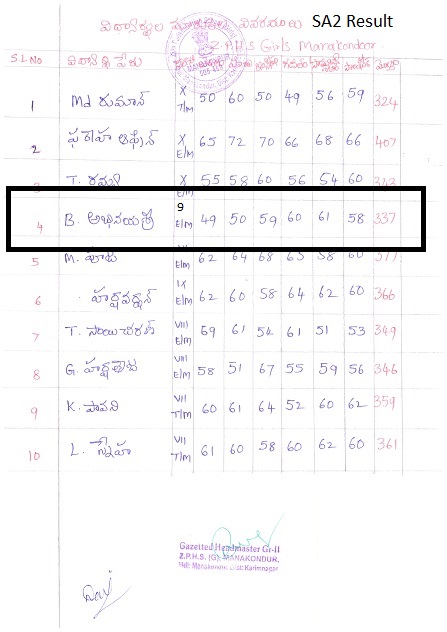 విద్యార్థుల మార్కుల వివరములు SA2 Result
Z.P.H.S Girls Manakondoor
S.L.No విద్యార్థి పేరు
1 Md రుమాన్ X T/M 50 60 50 49 56 59 324
2 ఫరాహా ఆఫ్రీన్ X E/M 65 72 70 66 68 66 407
3 T. రమ్య X 55 58 60 56 54 60 343
4 B. అభినయశ్రీ 9 E/M 49 50 59 60 61 58 337
5 M. పూజ E/M 62 64 68 65 58 60 377
6 హర్షవర్ధన్ IX E/M 62 60 58 64 62 60 366
7 T. సాయిచరణ్ VIII E/M 69 61 54 61 51 53 349
8 G. హర్షితా VIII E/M 58 51 67 55 59 56 346
9 K. పావని VII T/M 60 61 64 52 60 62 359
10 L. స్నేహా VII T/M 61 60 58 60 62 60 361
Gazetted Headmaster Gr-II
Z.P.H.S. (G). MANAKONDUR,
Mdl: Manakondur Dist: Karimnagar